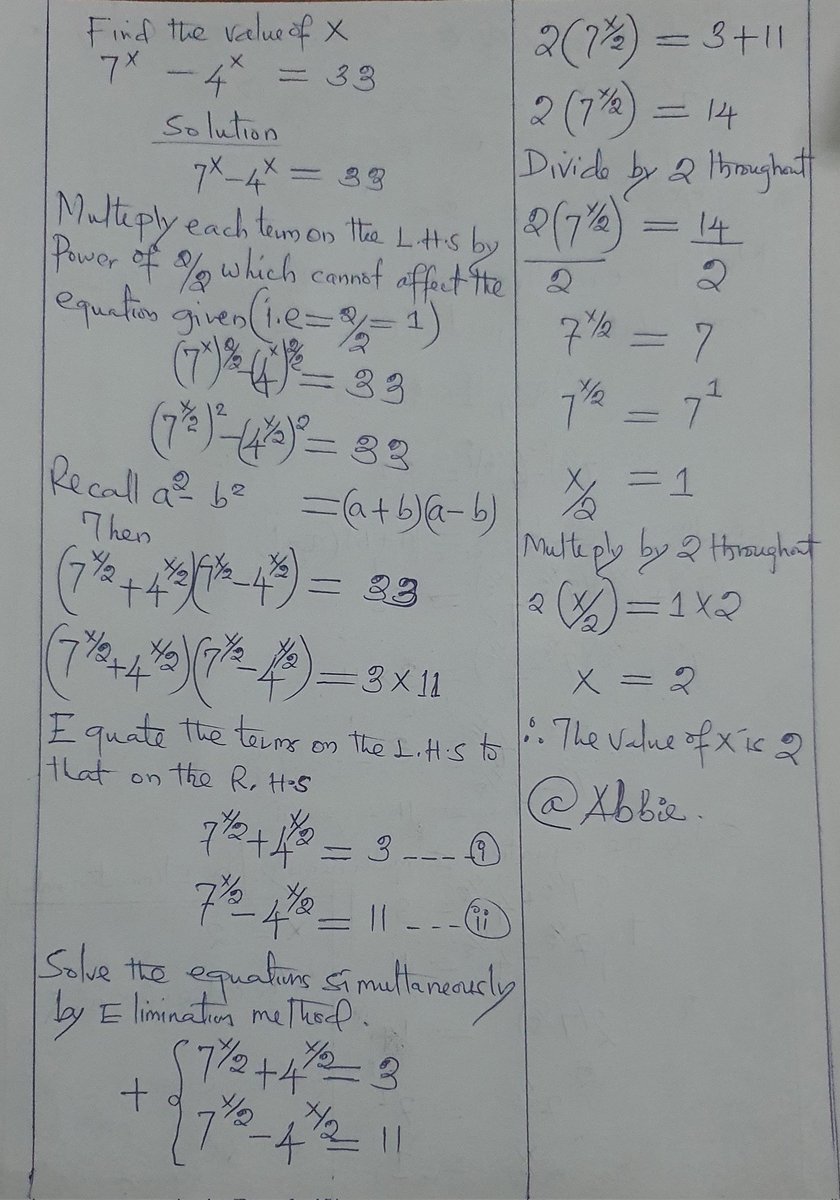 Find the value of X
7^x - 4^x = 33
Solution
7^x - 4^x = 33
Multiply each term on the L.H.S by
Power of 2/2 which cannot affect the
equation given (i.e = 2/2 = 1)
(7^x)^2/2 - (4^x)^2/2 = 33
(7^x/2)^2 - (4^x/2)^2 = 33
Recall a^2 - b^2 = (a+b)(a-b)
Then
(7^x/2 + 4^x/2)(7^x/2 - 4^x/2) = 33
(7^x/2 + 4^x/2)(7^x/2 - 4^x/2) = 3 × 11
Equate the terms on the L.H.S to
that on the R.H.S
7^x/2 + 4^x/2 = 3 ---- (i)
7^x/2 - 4^x/2 = 11 ---- (ii)
Solve the equations simultaneously
by Elimination method.
+ { 7^x/2 + 4^x/2 = 3
7^x/2 - 4^x/2 = 11
2(7^x/2) = 3+11
2(7^x/2) = 14
Divide by 2 throughout
2(7^x/2)/2 = 14/2
7^x/2 = 7
7^x/2 = 7^1
x/2 = 1
Multiply by 2 throughout
2(x/2) = 1×2
x = 2
∴ The value of x is 2
@Abbie.